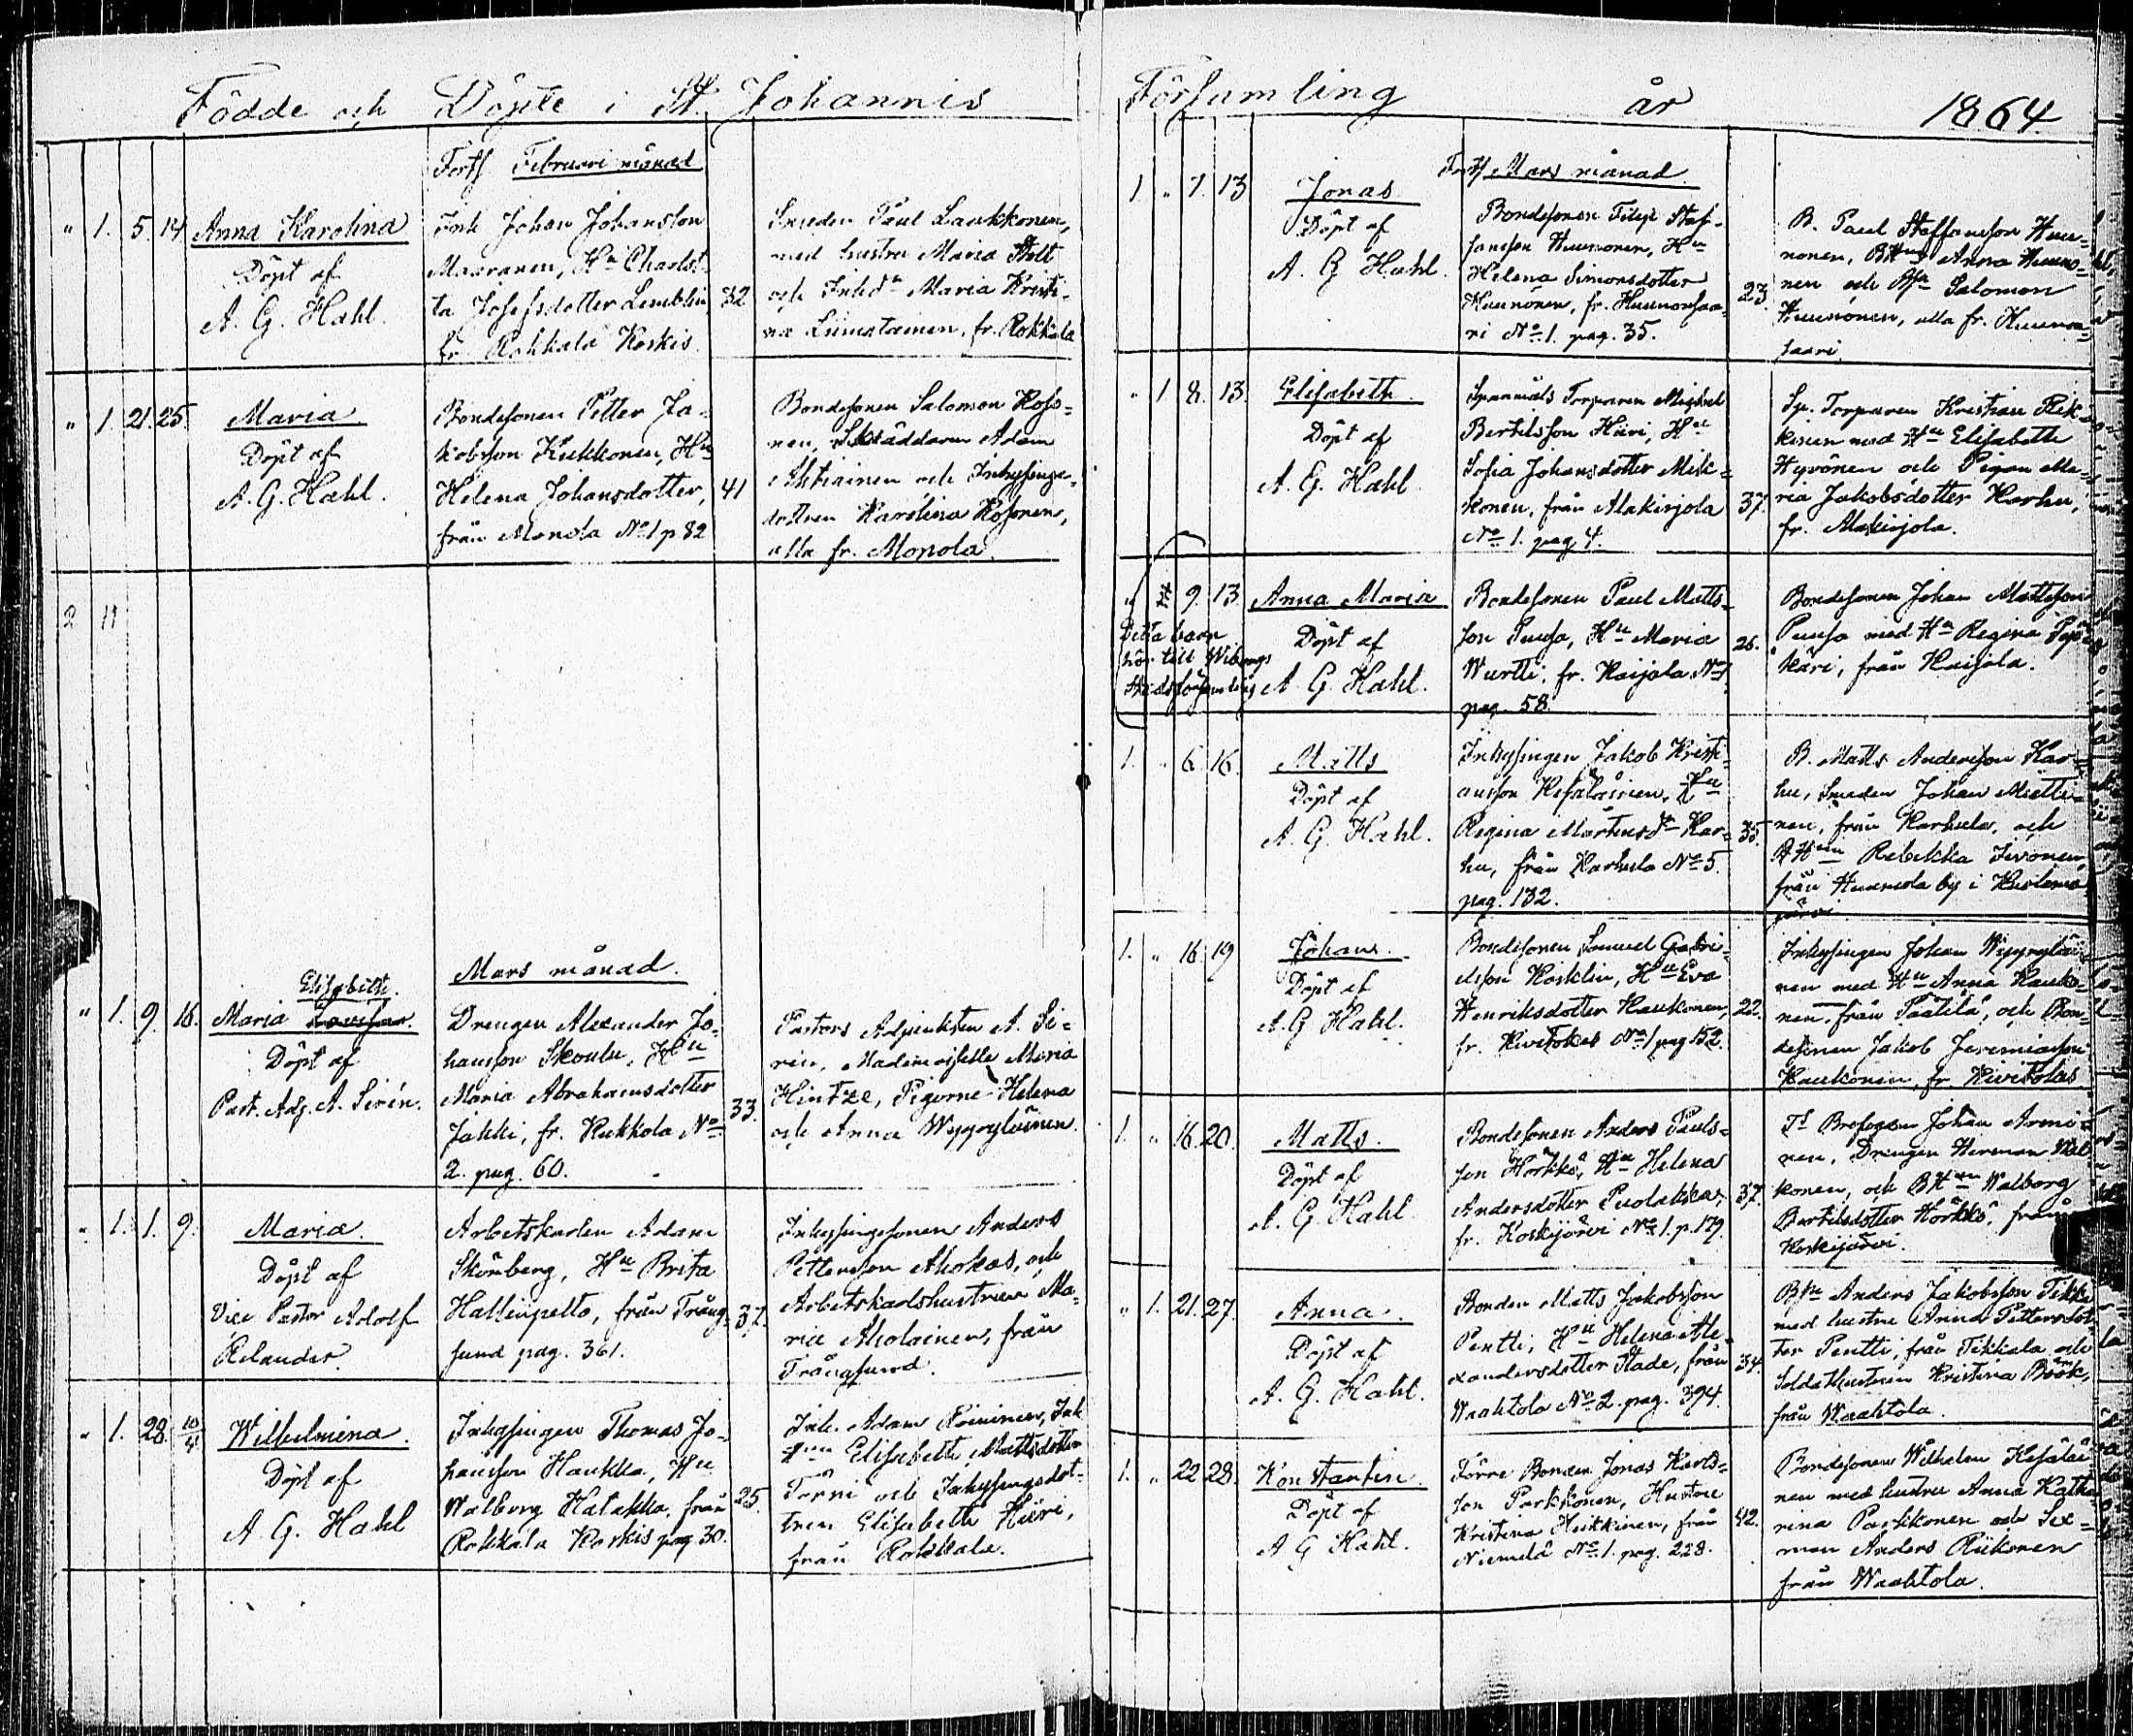 Födde och Döpte i St. Johannis
Forts Februari månad
" 1. 5. 14 Anna Karolina
Döpt af
A. G. Hahl.
Inh Johan Johansson
Maaranen, Hu Charlot-
ta Josefsdotter Lemblin
fr. Rokkala Koskis
32
Smeden Paul Laukkonen,
med hustru Maria Stolt
och Inhdr Maria Kristi-
na Liimatainen, fr. Rokkala
" 1. 21. 25. Maria
Döpt af
A. G. Hahl.
Bondesonen Petter Ja-
kobsson Kukkonen, Hu
Helena Johansdotter,
från Monola No 1 p 82
41
Bondesonen Salomon Koso-
nen, Skräddaren Adam
Ahtiainen och Inhysinge-
dottren Karolina Kosonen,
alla fr. Monola.
2 11
Mars månad.
Elisabeth
" 1. 9. 16. Maria
Döpt af
Past. Adj. A. Sirén.
Drengen Alexander Jo-
hansson Skoulu, Hu
Maria Abrahamsdotter
Jakki, fr. Kukkola No
2. pag. 60.
33.
Pastors Adjunkten A. Si-
rén, Mademoiselle Maria
Hintze, Pigorne Helena
och Anna Wypyryläinen.
" 1. 1. 9. Maria
Döpt af
Vice Pastor Adolf
Relander.
Arbetskarlen Adam
Skönberg, Hu Brita
Hallinpelto, från Trång-
sund pag. 361.
37.
Inhysingesonen Anders
Pettersson Ahokas, och
Arbetskarlshustrun Ma-
ria Aholainen, från
Trångsund.
" 1. 28. 10/4 Wilhelmina.
Döpt af
A. G. Hahl
Inhysingen Thomas Jo-
hansson Haukka, Hu
Walborg Hatakka, från
Rokkala Koskis pag. 30.
25.
Inh. Adam Roininen, Inh
Hun Elisabeth Mattsdotter
Torni och Inhysingedot-
tren Elisabeth Hiiri,
från Rokkala.
Församling år 1864.
Forts Mars månad.
1 " 7. 13 Jonas
Döpt af
A. G. Hahl.
Bondesonen Filip Staf-
fansson Huunonen, Hu
Helena Simonsdotter
Huunonen, fr. Huunonsaa-
ri No 1. pag. 35.
23.
B. Paul Staffansson Huu-
nonen, BHu Anna Huuno-
nen och Bsn Salomon
Huunonen, alla fr. Huunon-
saari.
" 1 8. 13. Elisabeth
Döpt af
A. G. Hahl
Spanmåls Torparen Michel
Bertilsson Hiiri, Hu
Sofia Johansdotter Mik-
konen, från Alakirjola
No 1. pag 4.
37.
Sp. Torparen Kristian Rik-
kinen med Hu Elisabeth
Hyvönen och Pigan Ma-
ria Jakobsdotter Karhu,
fr. Alakirjola.
9. 13 Anna Maria
Detta barn
hör till Wiborgs
Stadsförsamling
Döpt af
A. G. Hahl.
Bondesonen Paul Matts-
son Pursa, Hu Maria
Wurtti, fr. Kaijala No 1
pag. 58.
26.
Bondesonen Johan Mattsson
Pursa med Hu Regina
från Kaijala.
1. " 6. 16. Matts
Döpt af
A. G. Hahl.
Inhysingen Jakob Kristi-
ansson Kesäläinen, Hu
Regina Mårtensdr Kar-
hu, från Karhula No 5.
pag. 132.
35.
B. Matts Andersson Kar-
hu, Smeden Johan Mietti-
nen, från Karhula, och
BHun Rebekka Ivonen,
från by i
järvi
1. " 16. 19 Johan
Döpt af
A. G. Hahl.
Bondesonen Samuel Gabri-
elsson Kosklin, Hu Eva
Henriksdotter Haukonen,
fr. Kirvitokas No 1 pag 152.
22.
Inhysingen Johan Wypyryläi-
nen med Hu Anna Hauko-
nen, från Päätilä, och Bon-
desonen Jakob Jeremiasson
Haukonen, fr.
1. " 16. 20. Matts.
Döpt af
A. G. Hahl
Bondesonen Anders Pauls-
son Hörkkö, Hu Helena
Andersdotter Puolakka,
fr. Koskijärvi No 1. p. 179.
37.
Johan Armi-
nen, Drengen Herman
konen, och BHun Walborg
Bertilsdotter Hörkkö, från
Koskijärvi.
" 1. 21. 27. Anna.
Döpt af
A. G. Hahl.
Bonden Matts Jakobsson
Pentti, Hu Helena Ale-
xandersdotter Stade, från
Waahtola No 2. pag. 394.
34.
Bsn Anders Jakobsson Tikka
med hustru Anna Pettersdot-
ter Pentti, från Tikkala och
Soldathustrun Kristina Böök,
från Waahtola.
1. " 22 28. Konstantin
Döpt af
A. G. Hahl.
Förre Bonden Jonas Karls-
son Parkkonen, Hustru
Kristina Heikkinen, från
Niemelä No 1. pag. 228.
42.
Bondesonen Wilhelm Kesäläi-
nen med hustru Anna Katha-
rina Parkkonen och Sex-
man Anders Riikonen
från Waahtola.